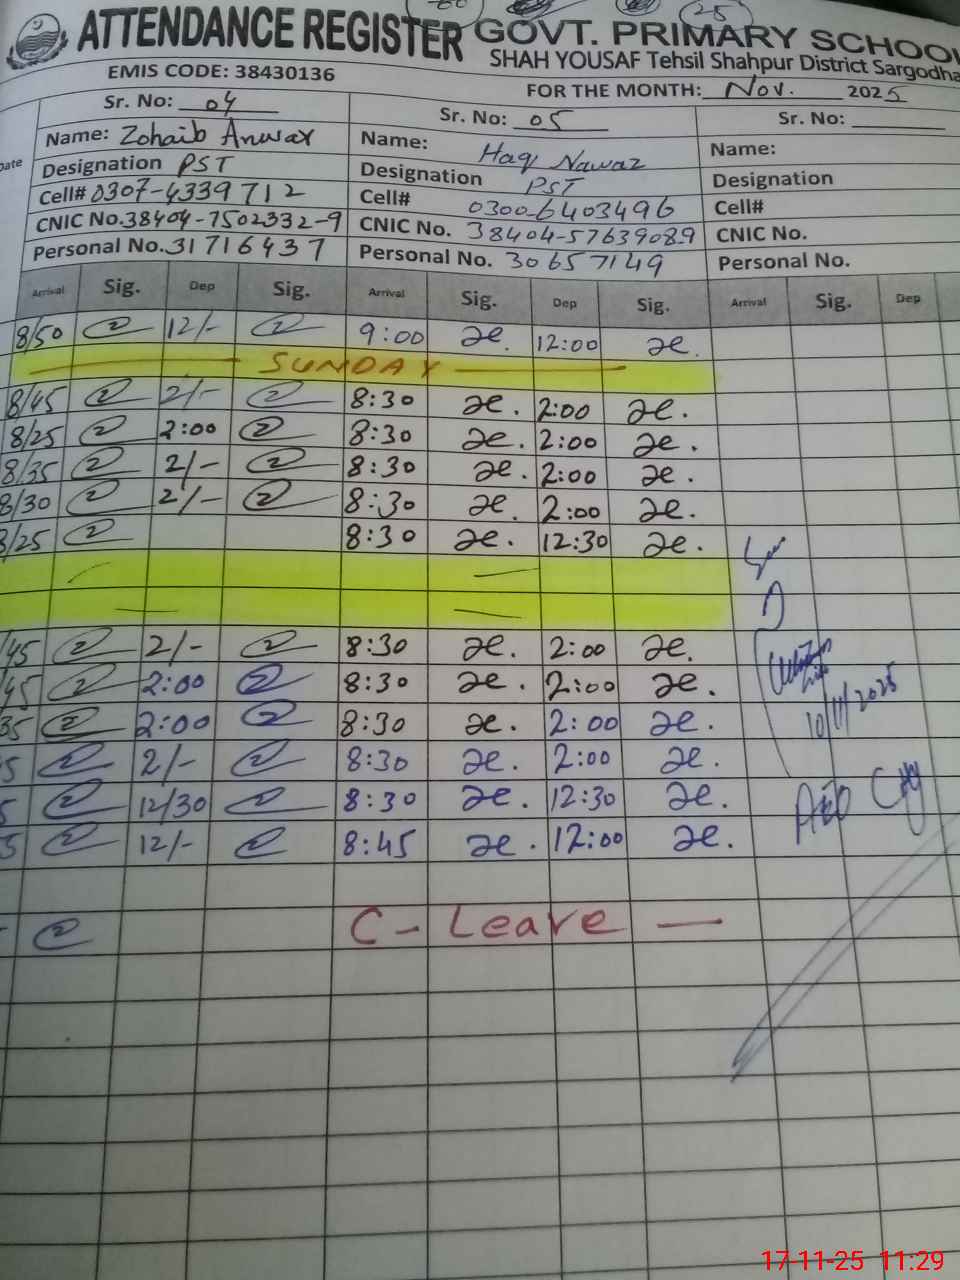 ATTENDANCE REGISTER GOVT. PRIMARY SCHOOL
SHAH YOUSAF Tehsil Shahpur District Sargodha
EMIS CODE: 38430136
FOR THE MONTH: Nov. 2025
Sr. No: 04 Sr. No: 05 Sr. No:
Date
Name: Zohaib Anwar Name: Haq Nawaz Name:
Designation PST Designation PST Designation
Cell# 0307-4339712 Cell# 0300-6403496 Cell#
CNIC No. 38404-7502332-9 CNIC No. 38404-57639089 CNIC No.
Personal No. 31716437 Personal No. 30657149 Personal No.
Arrival Sig. Dep Sig. Arrival Sig. Dep Sig. Arrival Sig. Dep
8/50 12/- 9:00 12:00
SUNDAY
8/45 2/- 8:30 2:00
8/25 2:00 8:30 2:00
8/35 2/- 8:30 2:00
8/30 2/- 8:30 2:00
8/25 8:30 12:30
/45 2/- 8:30 2:00
45 2:00 8:30 2:00
35 2:00 8:30 2:00
5 2/- 8:30 2:00
5 12/30 8:30 12:30
5 12/- 8:45 12:00
10/11/2025
AEO
C - Leave -
17-11-25 11:29